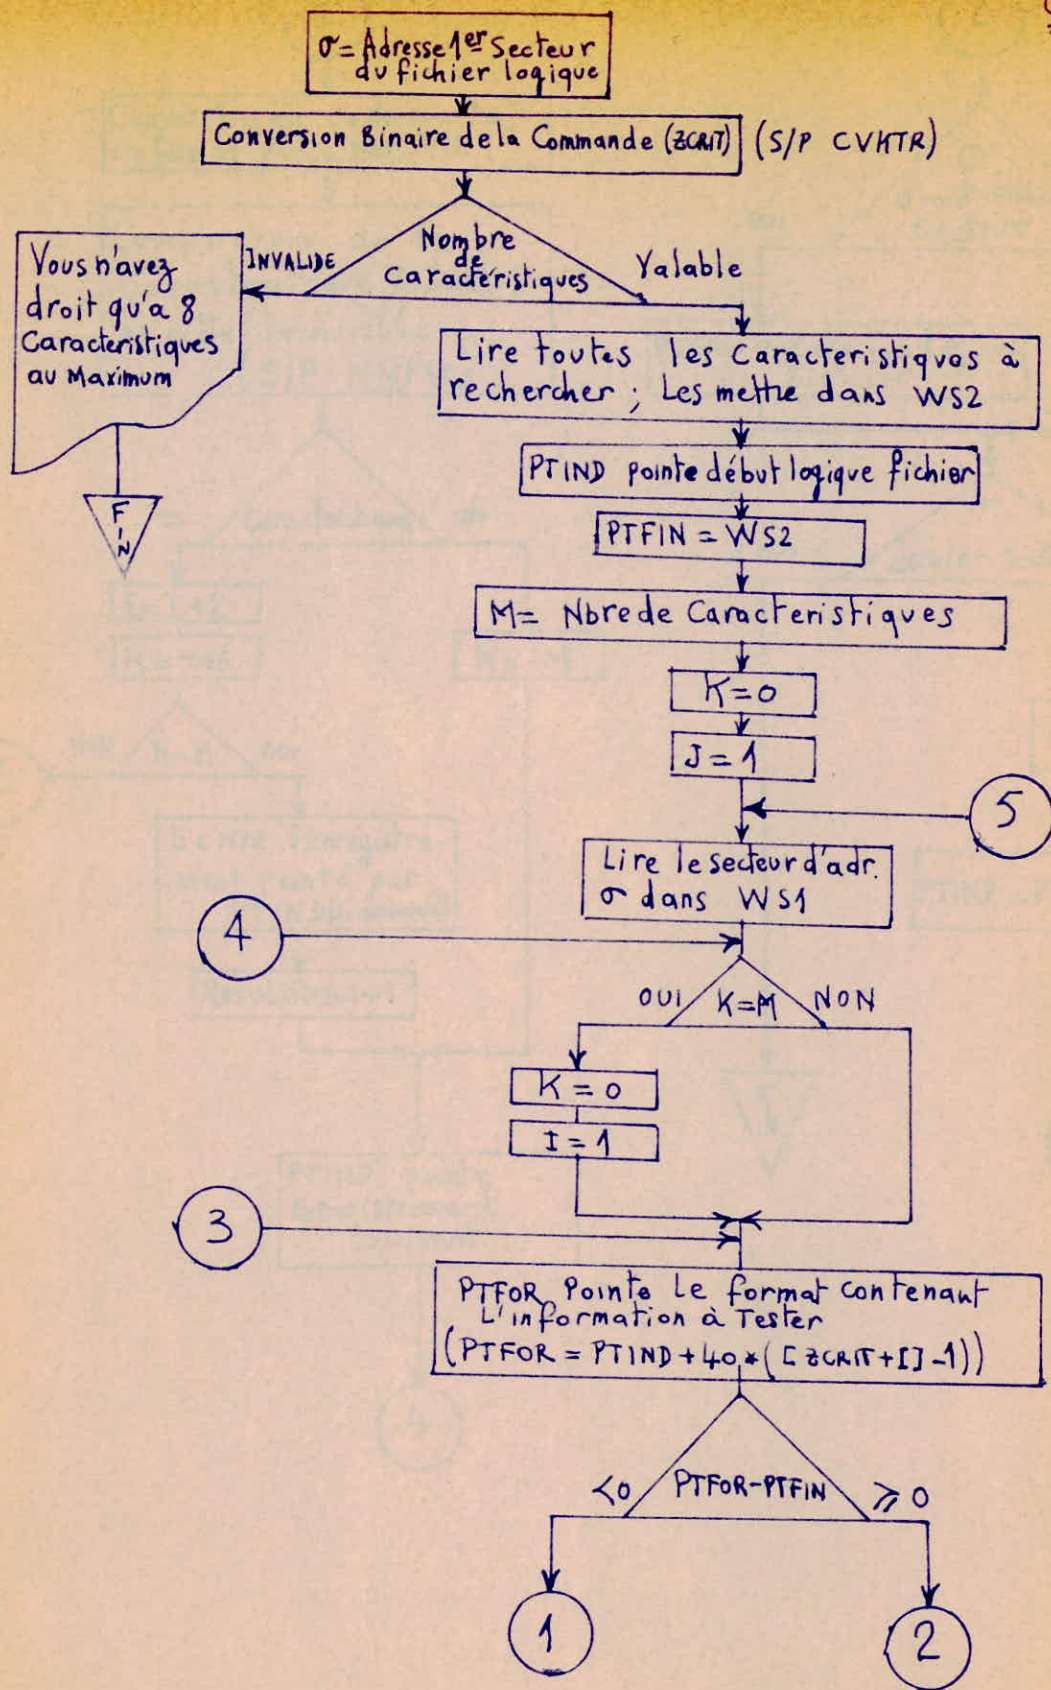 σ = Adresse 1er Secteur
du fichier logique
Conversion Binaire de la Commande (ZCRIT) (S/P CVKTR)
Nombre
de
Caractéristiques
INVALIDE
Valable
Vous n'avez
droit qu'a 8
Caracteristiques
au Maximum
FIN
Lire toutes les Caracteristiques à
rechercher ; Les mettre dans WS2
PTIND pointe début logique fichier
PTFIN = WS2
M = Nbre de Caracteristiques
K = 0
J = 1
5
Lire le secteur d'adr.
σ dans WS1
4
OUI K=M NON
K = 0
I = 1
3
PTFOR Pointe Le format contenant
L'information à Tester
(PTFOR = PTIND + 40 * ([ZCRIT+I] -1))
<0 PTFOR-PTFIN ⩾ 0
1
2